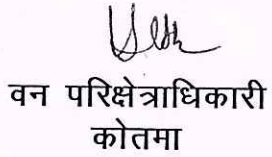 वन परिक्षेत्राधिकारी
कोतमा